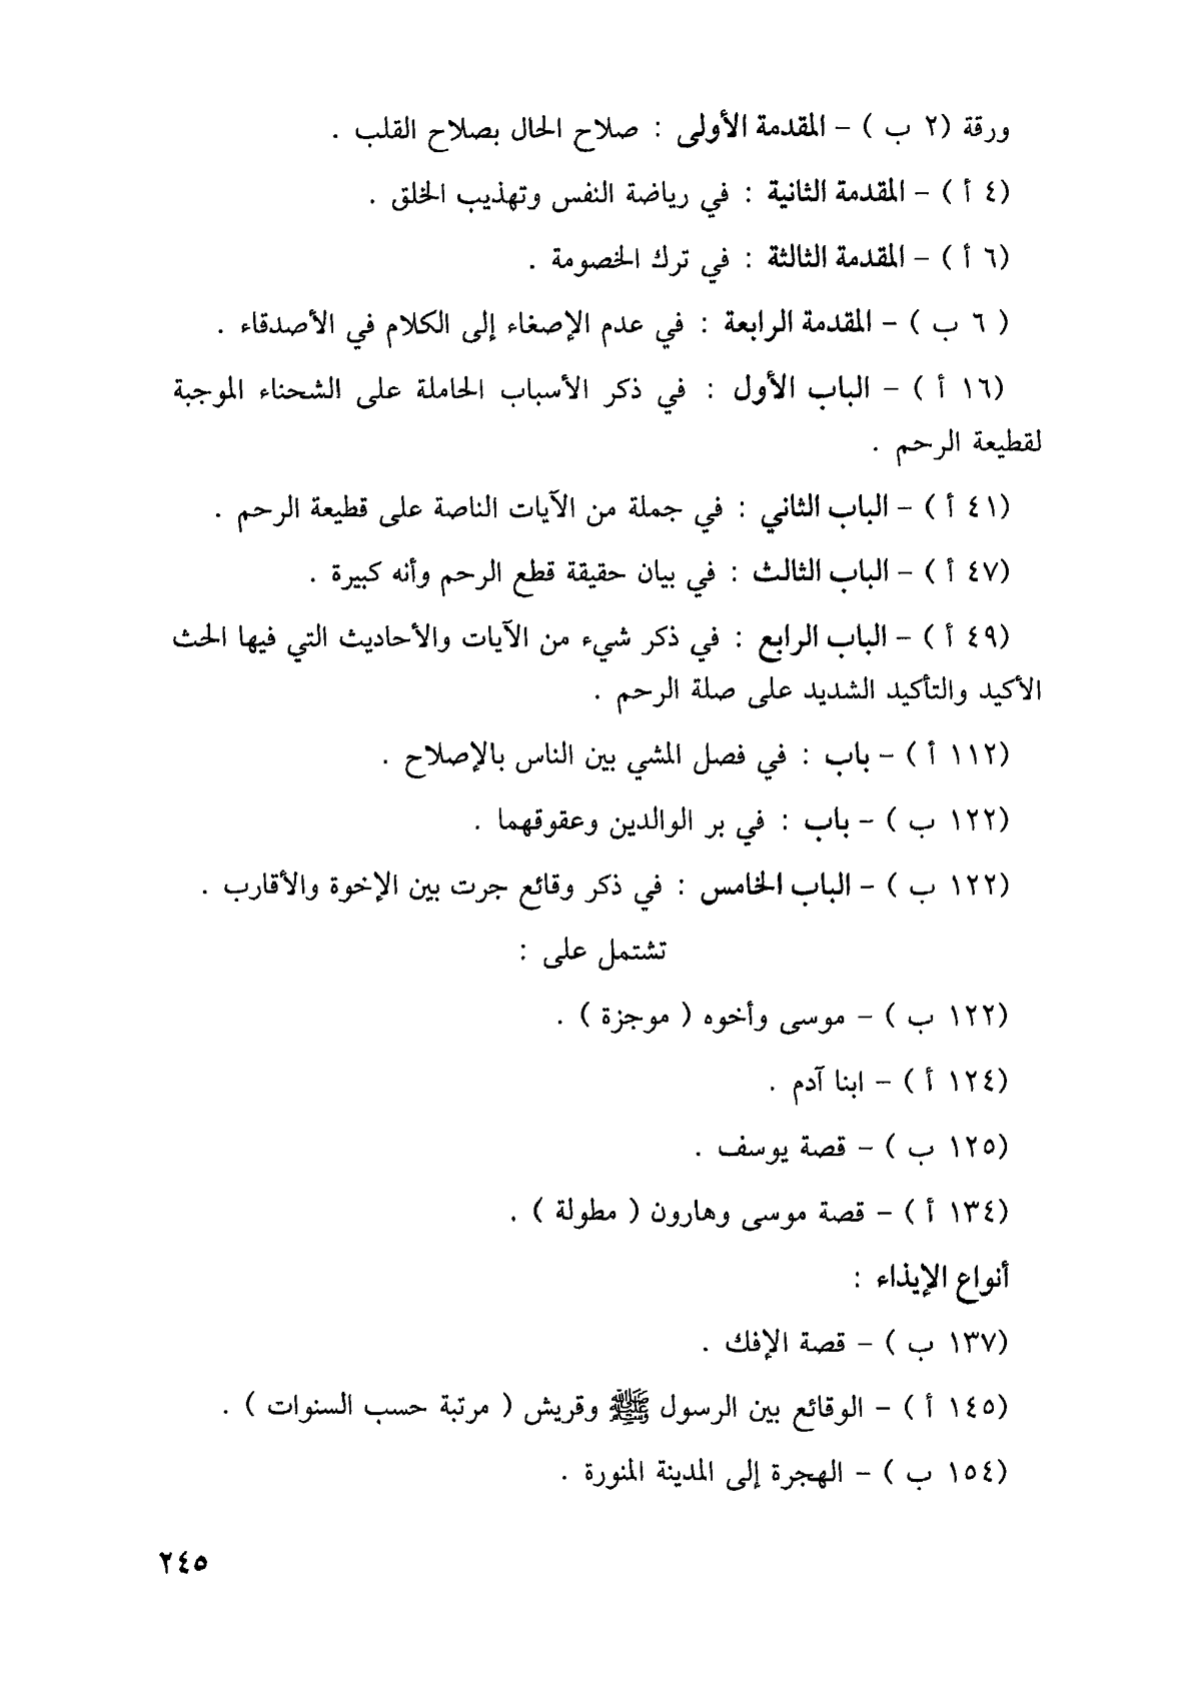 ورقة (٢ ب ) – المقدمة الأولى : صلاح الحال بصلاح القلب .
(٤ أ ) – المقدمة الثانية : في رياضة النفس وتهذيب الخلق .
(٦ أ ) – المقدمة الثالثة : في ترك الخصومة .
( ٦ ب ) – المقدمة الرابعة : في عدم الإصغاء إلى الكلام في الأصدقاء .
(١٦ أ ) – الباب الأول : في ذكر الأسباب الحاملة على الشحناء الموجبة
لقطيعة الرحم .
(٤١ أ ) – الباب الثاني : في جملة من الآيات الناصة على قطيعة الرحم .
(٤٧ أ ) – الباب الثالث : في بيان حقيقة قطع الرحم وأنه كبيرة .
(٤٩ أ ) – الباب الرابع : في ذكر شيء من الآيات والأحاديث التي فيها الحث
الأكيد والتأكيد الشديد على صلة الرحم .
(١١٢ أ ) – باب : في فصل المشي بين الناس بالإصلاح .
(١٢٢ ب ) – باب : في بر الوالدين وعقوقهما .
(١٢٢ ب ) – الباب الخامس : في ذكر وقائع جرت بين الإخوة والأقارب .
تشتمل على :
(١٢٢ ب ) – موسى وأخوه ( موجزة ) .
(١٢٤ أ ) – ابنا آدم .
(١٢٥ ب ) – قصة يوسف .
(١٣٤ أ ) – قصة موسى وهارون ( مطولة ) .
أنواع الإيذاء :
(١٣٧ ب ) – قصة الإفك .
(١٤٥ أ ) – الوقائع بين الرسول ﷺ وقريش ( مرتبة حسب السنوات ) .
(١٥٤ ب ) – الهجرة إلى المدينة المنورة .
٢٤٥